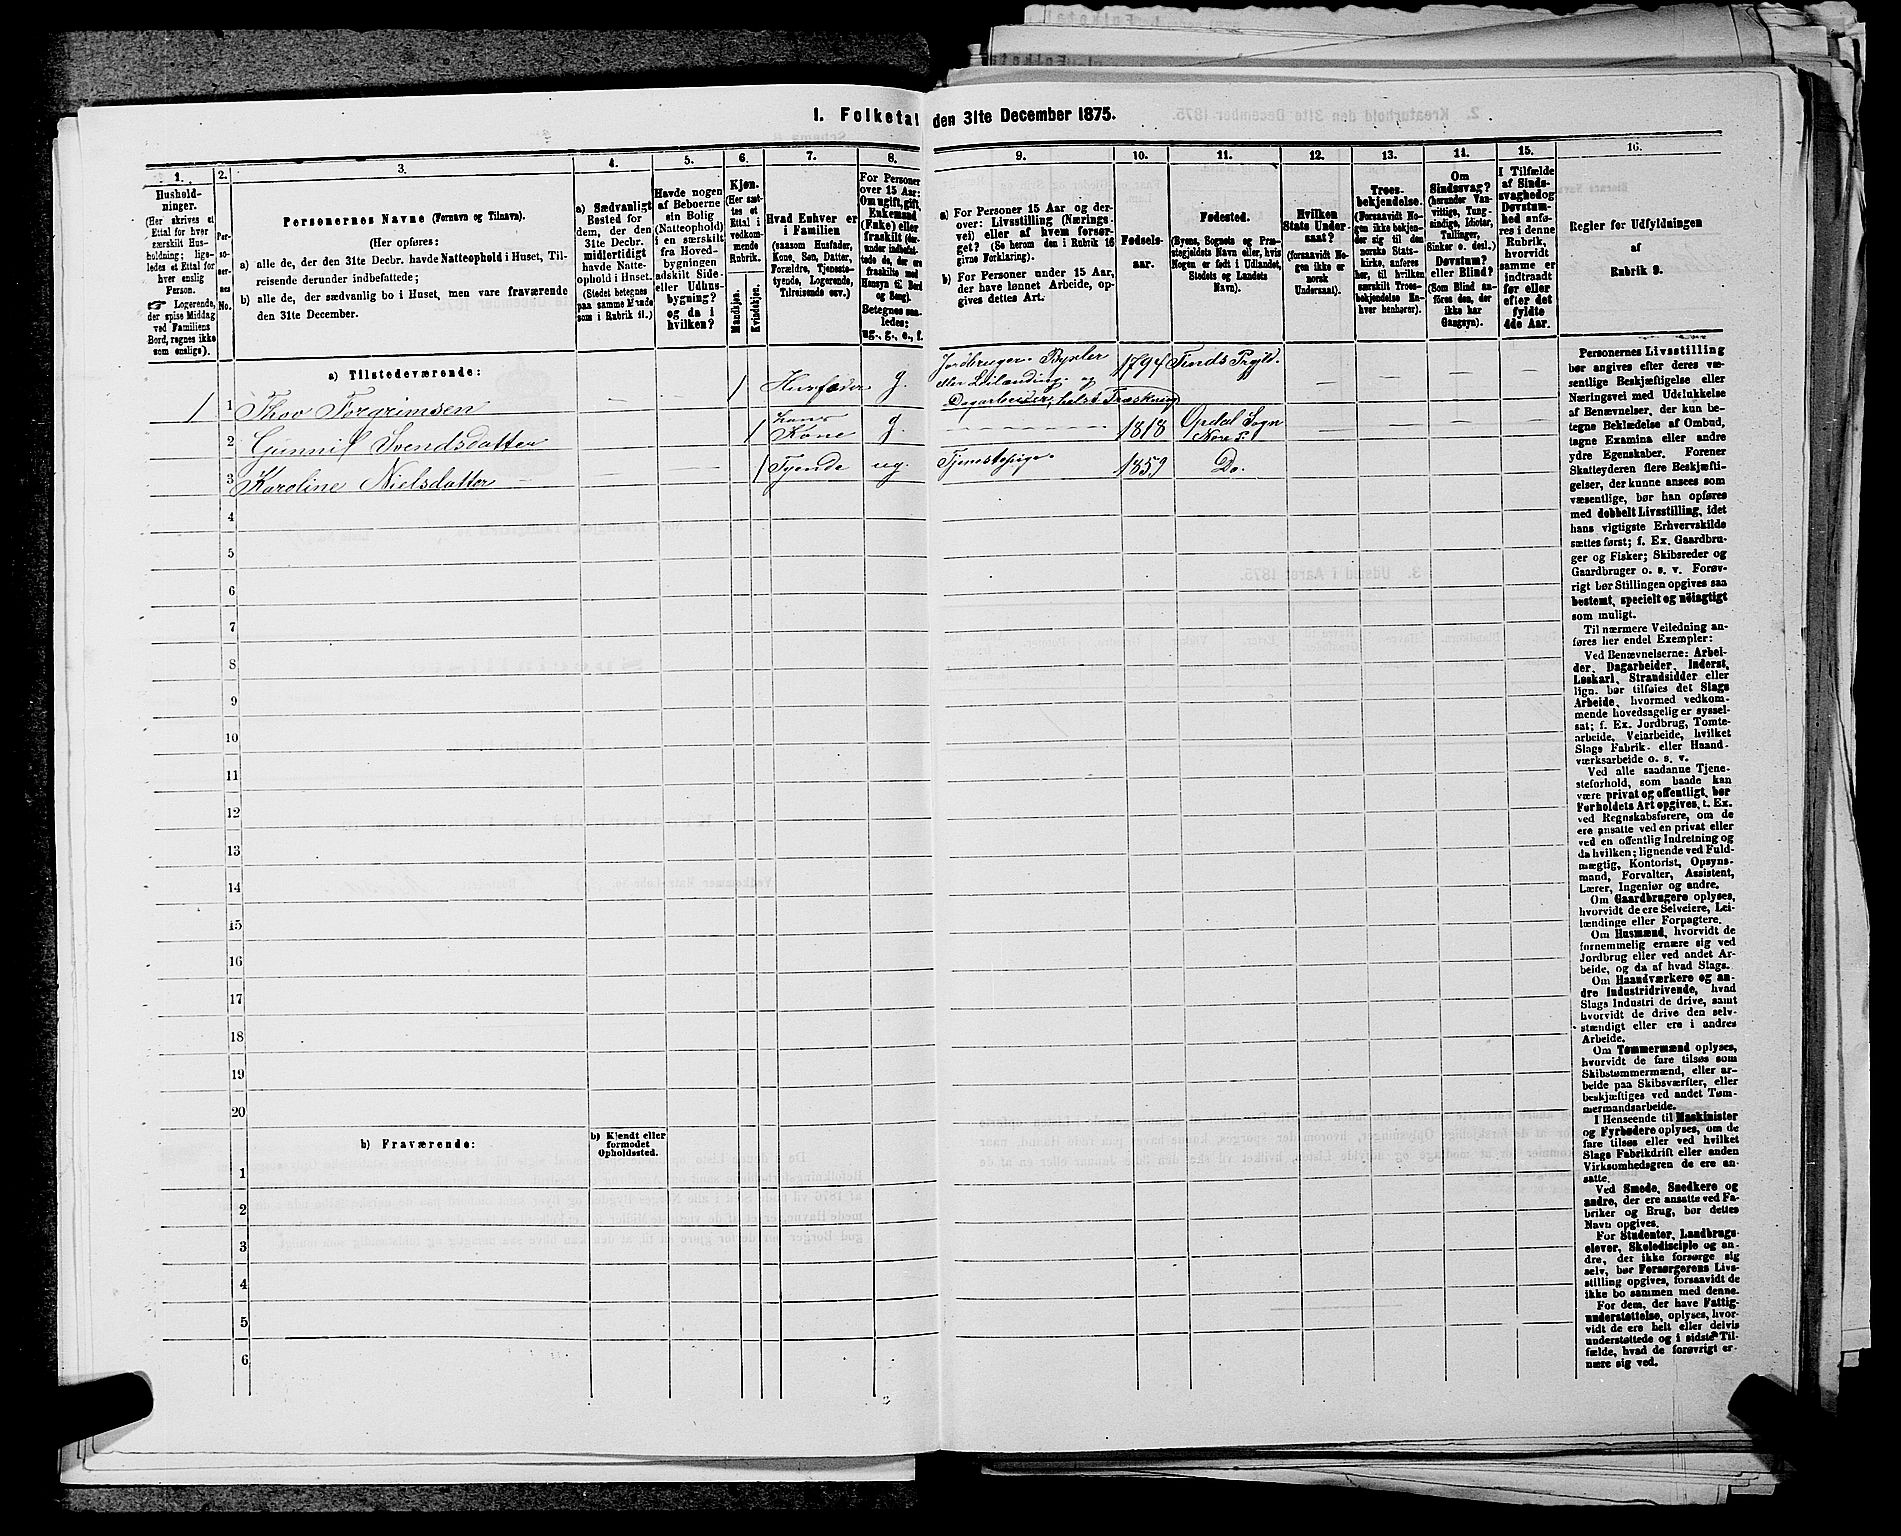 1. Folketal den 31te December 1875.
1.
Hushold-
ninger.
(Her skrives et
Ettal for hver
særskilt Hus-
holdning; lige-
ledes et Ettal for
hver enslig
Person.
☞ Logerende,
der spise Middag
ved Familiens
Bord, regnes ikke
som enslige).
2.
Per-
so-
ner-
nes
No.
3.
Personernes Navne (Fornavn og Tilnavn).
(Her opføres:
a) alle de, der den 31te Decbr. havde Natteophold i Huset, Til-
reisende derunder indbefattede;
b) alle de, der sædvanlig bo i Huset, men vare fraværende
den 31te December.
4.
a) Sædvanligt
Bosted for
dem, der den
31te Decbr.
midlertidigt
havde Natte-
ophold i Huset.
(Stedet betegnes
paa samme Maade
som i Rubrik 11.)
5.
Havde nogen
af Beboerne
sin Bolig
(Natteophold)
i en særskilt
fra Hoved-
bygningen
adskilt Side-
eller Udhus-
bygning?
og da i
hvilken?
6.
Kjøn.
(Her sæt-
tes et
Ettal i
vedkom-
mende
Rubrik.
Mandkjøn.
Kvindekjøn.
7.
Hvad Enhver er
i Familien
(saasom Husfader,
Kone, Søn, Datter,
Forældre, Tjeneste-
tyende, Logerende,
Tilreisende osv.)
8.
For Personer
over 15 Aar:
Om ugift, gift,
Enkemand
(Enke) eller
fraskilt (der-
under indbefat-
tede de, der ere
fraskilte med
Hensyn til Bord
og Seng).
Betegnes saa-
ledes:
ug., g., e., f.
9.
a) For Personer 15 Aar og der-
over: Livsstilling (Nærings-
vei) eller af hvem forsør-
get? (Se herom den i Rubrik 16
givne Forklaring).
b) For Personer under 15 Aar,
der have lønnet Arbeide, op-
gives dettes Art.
10.
Fødsels-
aar.
11.
Fødested.
(Byens, Sognets og Præ-
stegjeldets Navn eller, hvis
Nogen er født i Udlandet,
Stedets og Landets
Navn).
12.
Hvilken
Stats Under-
saat?
(forsaavidt No-
gen ikke er
norsk
Undersaat).
13.
Troes-
bekjendelse.
(Forsaavidt No-
gen ikke bekjen-
der sig til den
norske Stats-
kirke, anføres
her, til hvilken
særskilt Troes-
bekjendelse En-
hver henhører).
14.
Om
Sindssvag?
(herunder Van-
vittige, Tung-
sindige, Idioter,
Tullinger,
Sinker o. desl.)
Døvstum?
eller Blind?
(Som Blind an-
føres den, der
ikke har
Gangsyn).
15.
I Tilfælde
af Sinds-
svaghed og
Døvstum-
hed anfø-
res i denne
Rubrik,
hvorvidt
samme er
indtraadt
før eller
efter det
fyldte
4de Aar.
16.
Regler for Udfyldningen
af
Rubrik 9.
a) Tilstedeværende:
1 1 Thov Torgrimsen — — 1 Husfader g. Jordbruger. Bygsler eller Leilænding. og Dagarbeider, helst Træskning 1794 Tinds Prgld. — — — —
2 Gunnil Svendsdatter — — 1 hans Kone g. 1818 Opdal Sogn Nore P. — — — —
3 Karoline Nielsdatter — — 1 Tyende ug. Tjenestepige. 1859 Do. — — — —
4
5
6
7
8
9
10
11
12
13
14
15
16
17
18
19
20
b) Fraværende:
b) Kjendt eller
formodet
Opholdssted.
1
2
3
4
5
6
Personernes Livsstilling
bør angives efter deres væ-
sentlige Beskjæftigelse eller
Næringsvei med Udelukkelse
af Benævnelser, der kun be-
tegne Beklædelse af Ombud,
tagne Examina eller andre
ydre Egenskaber. Forener
Skatteyderen flere Beskjæfti-
gelser, der kunne ansees som
væsentlige, bør han opføres
med dobbelt Livsstilling, idet
hans vigtigste Erhvervskilde
sættes først; f. Ex. Gaardbru-
ger og Fisker; Skibsreder og
Gaardbruger o. s. v. Forøv-
rigt bør Stillingen opgives saa
bestemt, specielt og nøiagtigt
som muligt.
Til nærmere Veiledning an-
føres her endel Exempler:
Ved Benævnelserne: Arbei-
der, Dagarbeider, Inderst,
Løskarl, Strandsidder eller
lign. bør tilføies det Slags
Arbeide, hvormed vedkom-
mende hovedsagelig er syssel-
sat; f. Ex. Jordbrug, Tomte-
arbeide, Veiarbeide, hvilket
Slags Fabrik- eller Haand-
værksarbeide o. s. v.
Ved alle saadanne Tjene-
steforhold, som baade kan
være privat og offentligt, bør
Forholdets Art opgives, t. Ex.
ved Regnskabsførere, om de
ere ansatte ved en privat eller
ved en offentlig Indretning og
da hvilken; lignende ved Fuld-
mægtig, Kontorist, Opsyns-
mand, Forvalter, Assistent,
Lærer, Ingeniør og andre.
Om Gaardbrugere oplyses,
hvorvidt de ere Selveiere, Lei-
lændinge eller Forpagtere.
Om Husmænd, hvorvidt de
fornemmelig ernære sig ved
Jordbrug eller ved andet Ar-
beide, og da af hvad Slags.
Om Haandværkere og an-
dre Industridrivende, hvad
Slags Industri de drive, samt
hvorvidt de drive den selv-
stændigt eller ere i andres
Arbeide.
Om Tømmermænd oplyses,
hvorvidt de fare tilsøs som
Skibstømmermænd, eller ar-
beide paa Skibsværfter, eller
beskjæftiges ved andet Tøm-
mermandsarbeide.
I Henseende til Maskinister
og Fyrbødere oplyses, om de
fare tilsøs eller ved hvilket
Slags Fabrikdrift eller anden
Virksomhedsgren de ere an-
satte.
Ved Smede, Snedkere og
andre, der ere ansatte ved Fa-
briker og Brug, bør dettes
Navn opgives.
For Studenter, Landbrugs-
elever, Skoledisciple og an-
dre, der ikke forsørge sig
selv, bør Forsørgerens Livs-
stilling opgives, forsaavidt de
ikke bo sammen med denne.
For dem, der have Fattig-
understøttelse, oplyses, hvor-
vidt de ere helt eller delvis
understøttede og i sidste Til-
fælde, hvad de forøvrigt er-
nære sig ved.